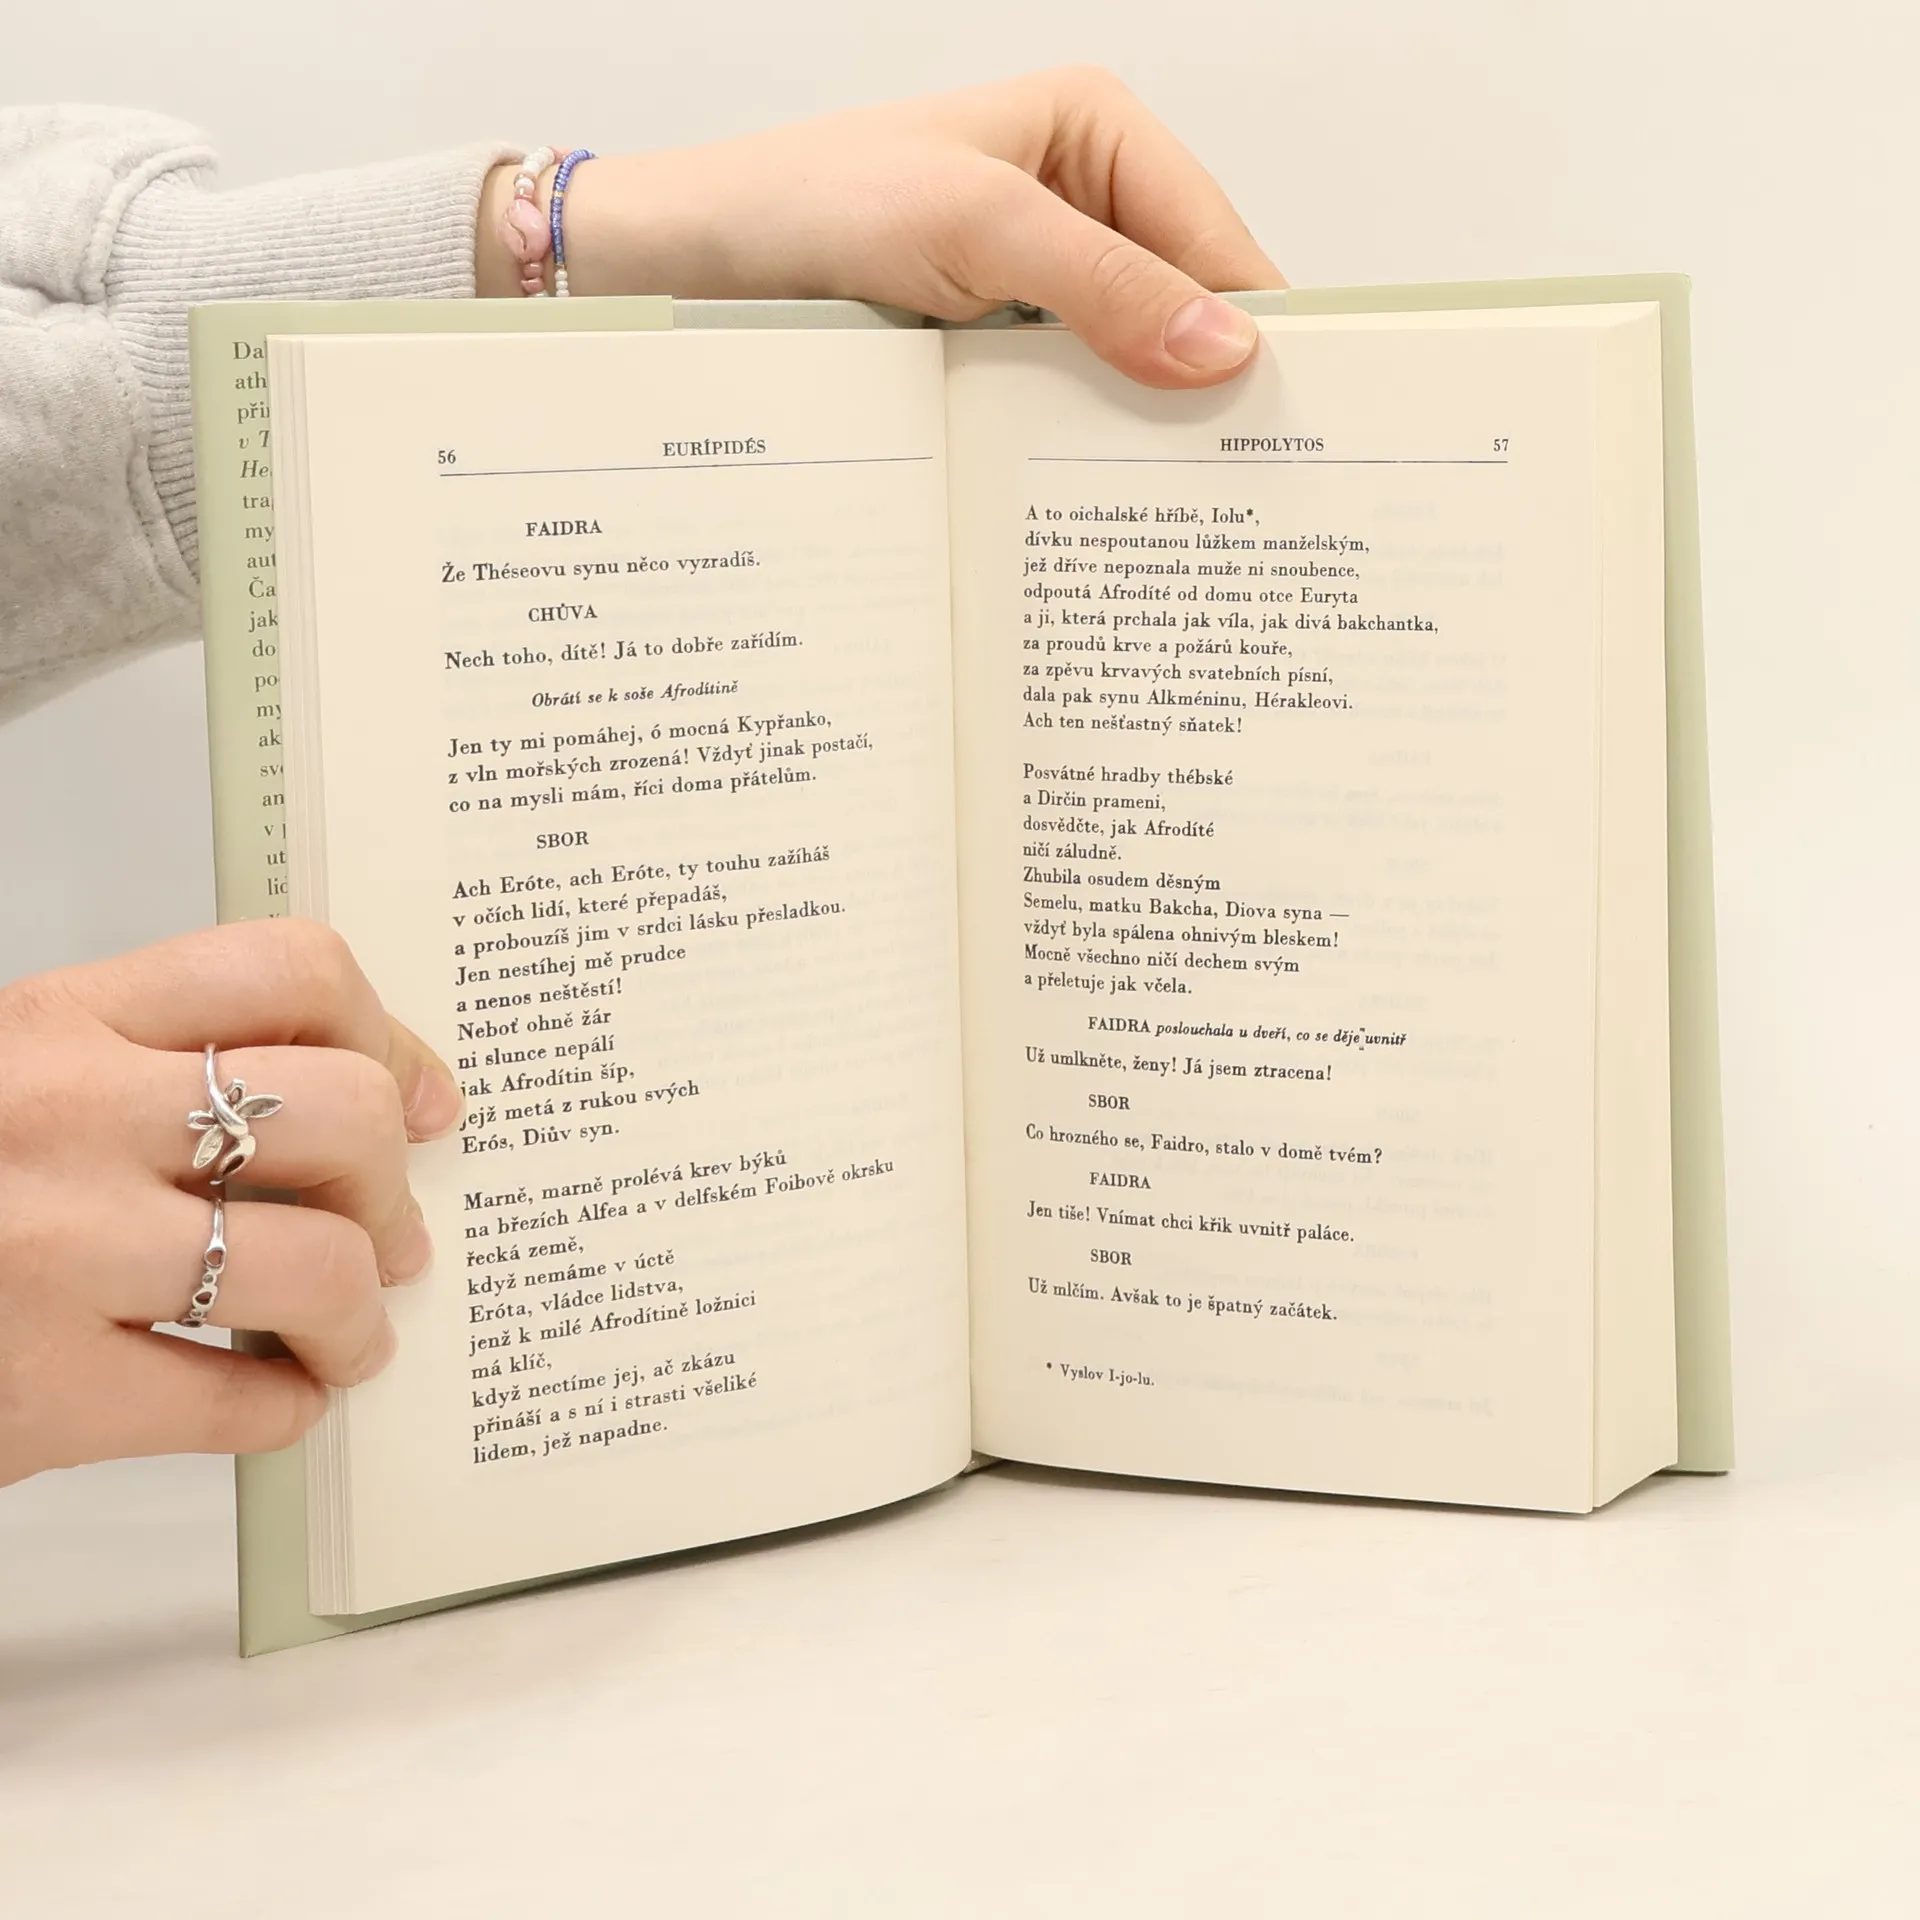 Da
ath
při
v T
He
tra
my
aut
Ča
jak
do
po
my
ak
sv
an
v p
ut
lid
56 EURÍPIDÉS
FAIDRA
Že Théseovu synu něco vyzradíš.
CHŮVA
Nech toho, dítě! Já to dobře zařídím.
Obrátí se k soše Afrodítině
Jen ty mi pomáhej, ó mocná Kypřanko,
z vln mořských zrozená! Vždyť jinak postačí,
co na mysli mám, říci doma přátelům.
SBOR
Ach Eróte, ach Eróte, ty touhu zažíháš
v očích lidí, které přepadáš,
a probouzíš jim v srdci lásku přesladkou.
Jen nestíhej mě prudce
a nenos neštěstí!
Neboť ohně žár
ni slunce nepálí
jak Afrodítin šíp,
jejž metá z rukou svých
Erós, Diův syn.
Marně, marně prolévá krev býků
na březích Alfea a v delfském Foibově okrsku
řecká země,
když nemáme v úctě
Eróta, vládce lidstva,
jenž k milé Afrodítině ložnici
má klíč,
když nectíme jej, ač zkázu
přináší a s ní i strasti všeliké
lidem, jež napadne.
HIPPOLYTOS 57
A to oichalské hříbě, Iolu*,
dívku nespoutanou lůžkem manželským,
jež dříve nepoznala muže ni snoubence,
odpoutá Afrodíté od domu otce Euryta
a ji, která prchala jak víla, jak divá bakchantka,
za proudů krve a požárů kouře,
za zpěvu krvavých svatebních písní,
dala pak synu Alkméninu, Hérakleovi.
Ach ten nešťastný sňatek!
Posvátné hradby thébské
a Dirčin prameni,
dosvědčte, jak Afrodíté
ničí záludně.
Zhubila osudem děsným
Semelu, matku Bakcha, Diova syna —
vždyť byla spálena ohnivým bleskem!
Mocně všechno ničí dechem svým
a přeletuje jak včela.
FAIDRA poslouchala u dveří, co se děje uvnitř
Už umlkněte, ženy! Já jsem ztracena!
SBOR
Co hrozného se, Faidro, stalo v domě tvém?
FAIDRA
Jen tiše! Vnímat chci křik uvnitř paláce.
SBOR
Už mlčím. Avšak to je špatný začátek.
* Vyslov I-jo-lu.